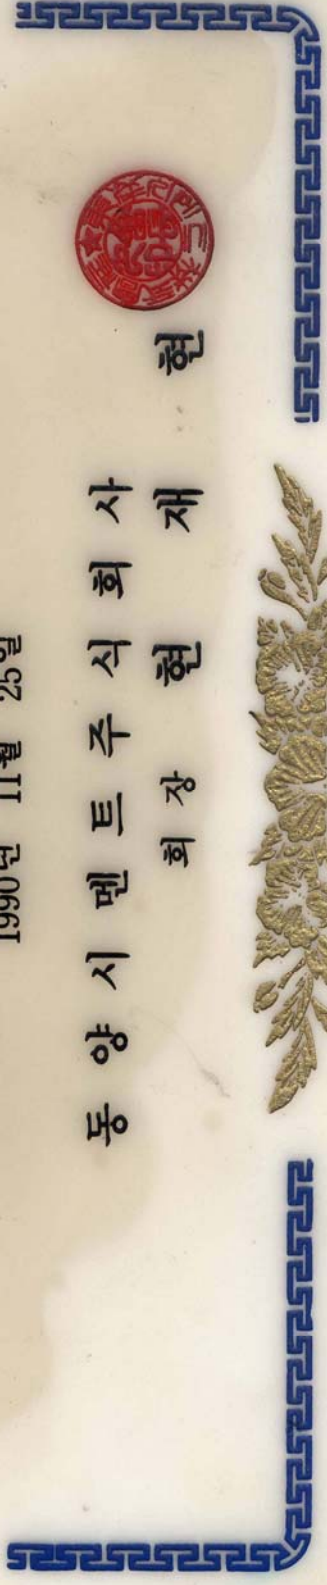 1990년 11월 25일
동양시멘트주식회사
회장 현재현